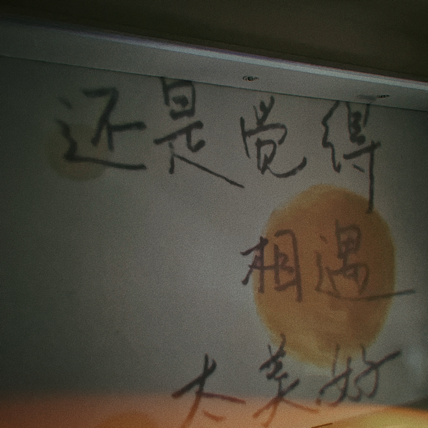 还是觉得
相遇
太美好